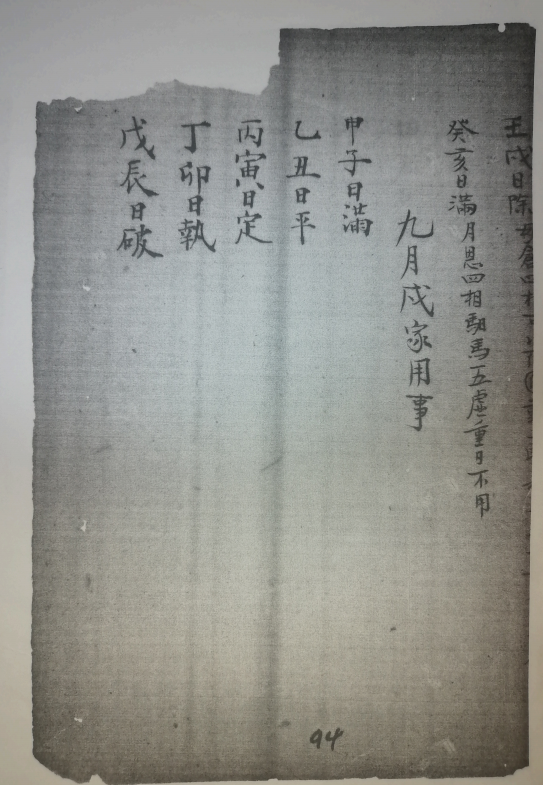 壬戌日除母倉四相
癸亥日滿月恩四相馹馬五虛重日不用
九月戌家用事
甲子日滿
乙丑日平
丙寅日定
丁卯日執
戊辰日破
94